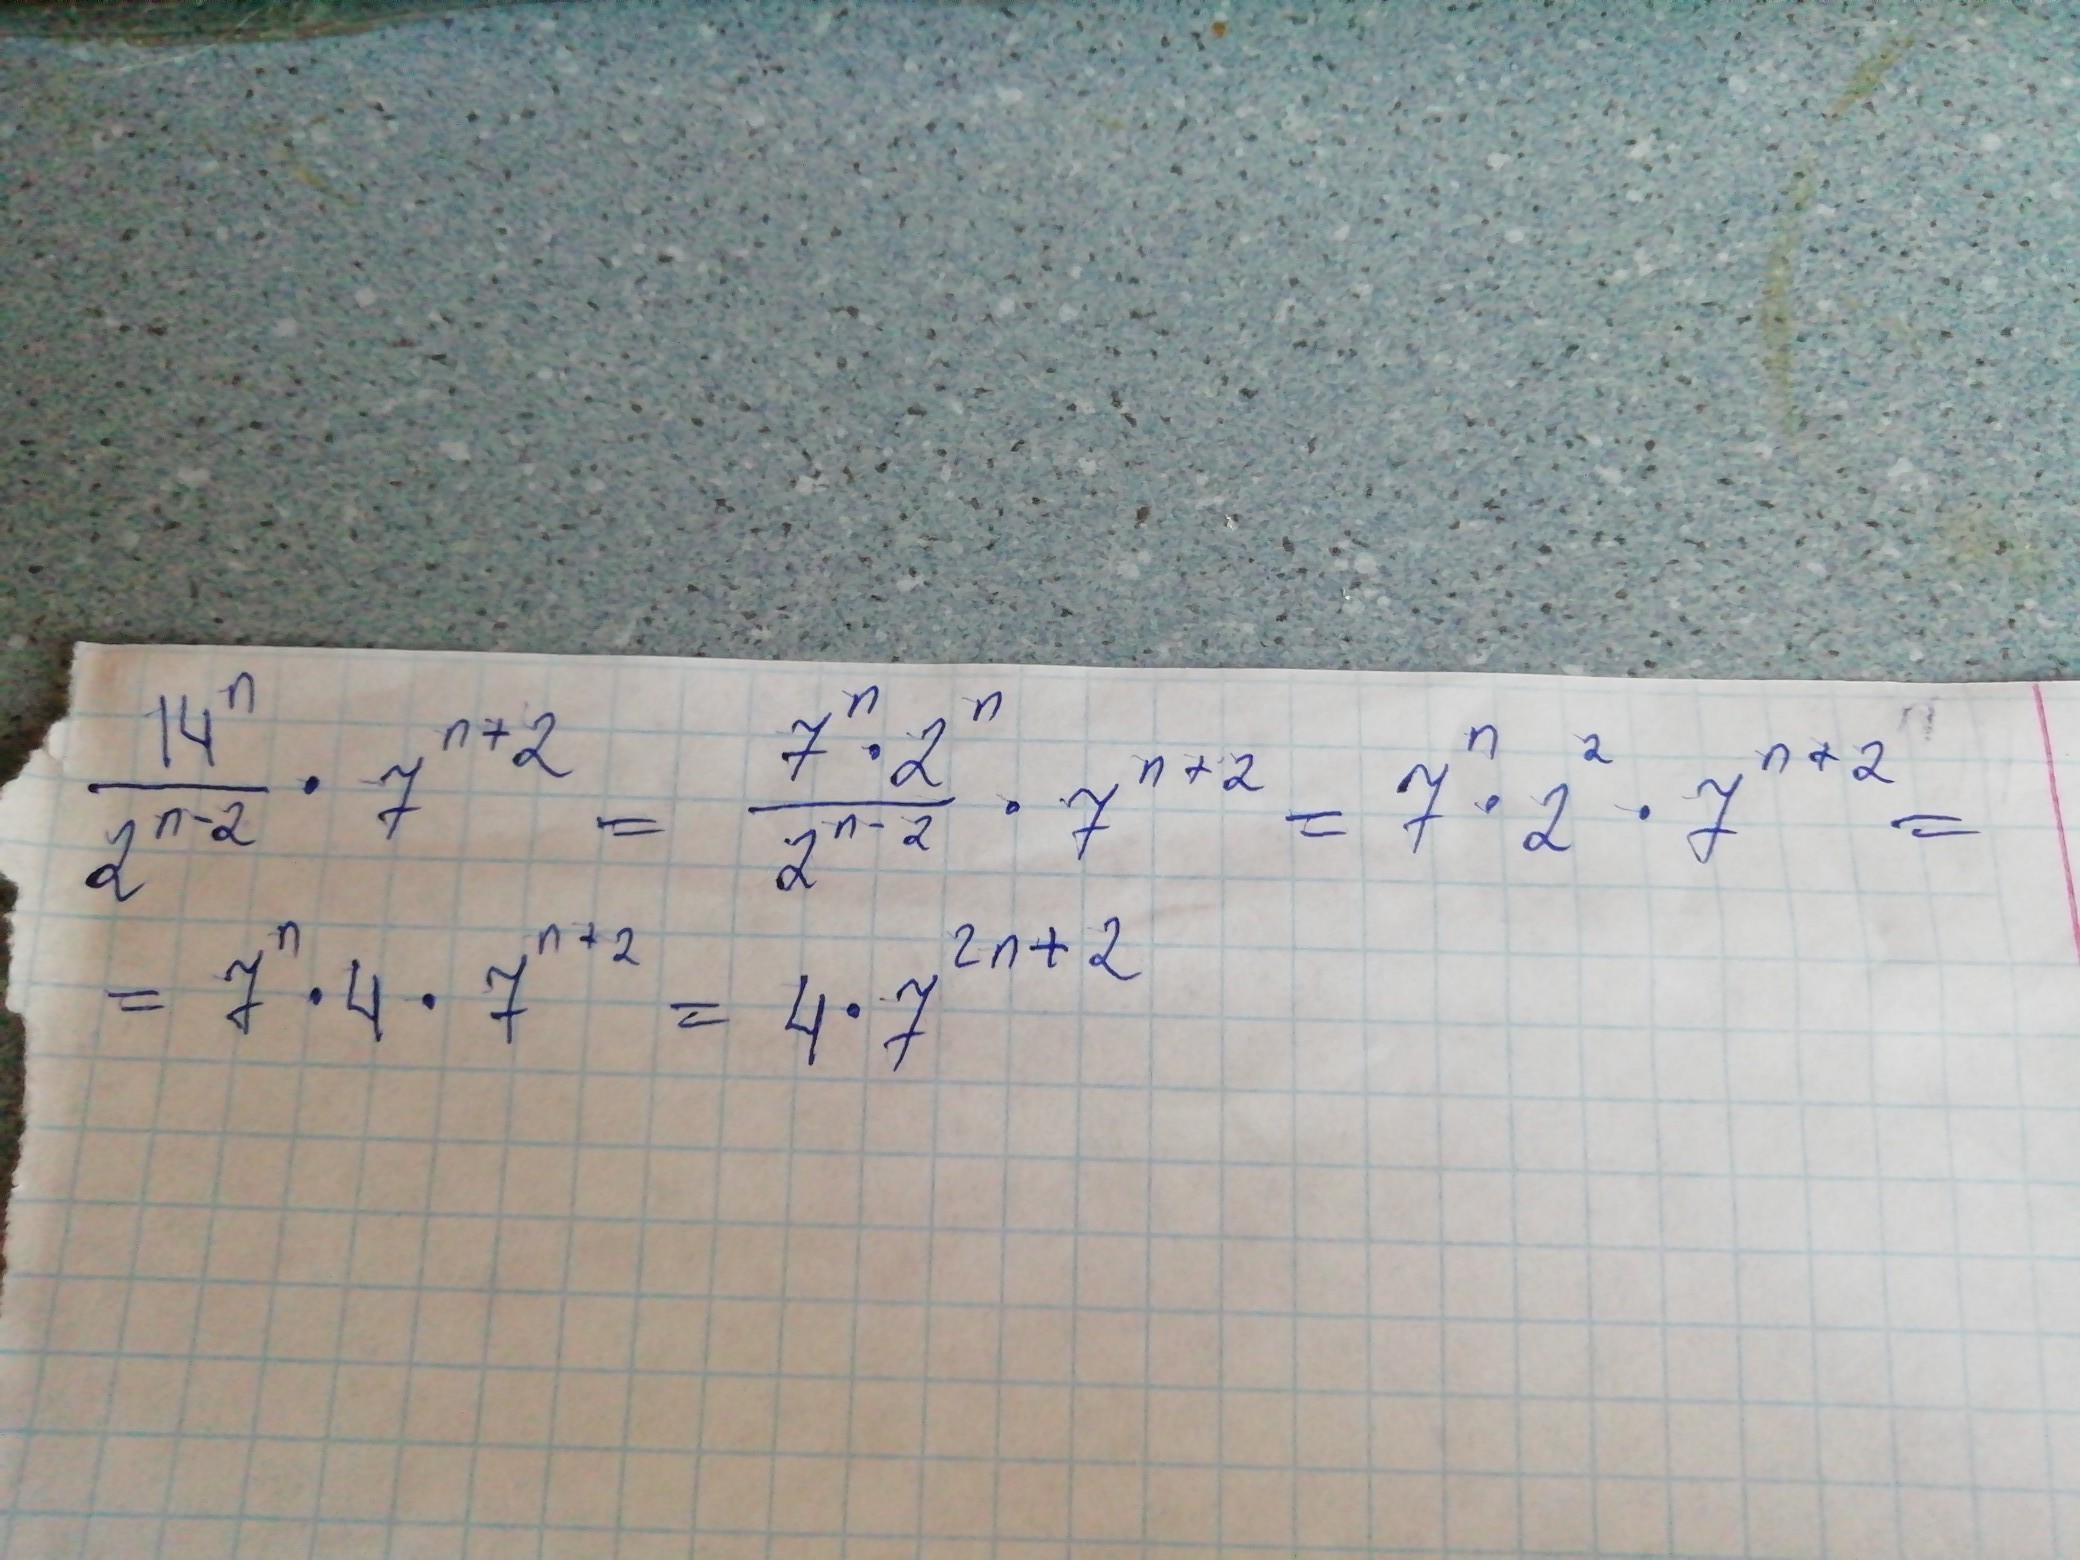 14^n / 2^(n-2) · 7^(n+2) = 7^n · 2^n / 2^(n-2) · 7^(n+2) = 7^n · 2^2 · 7^(n+2) =
= 7^n · 4 · 7^(n+2) = 4 · 7^(2n+2)